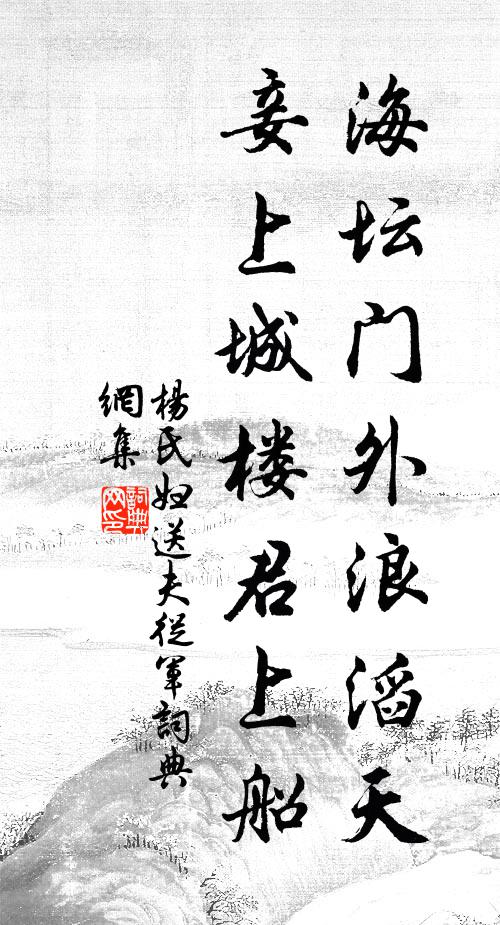 海坛门外浪滔天
妾上城楼君上船
楊氏妇送夫從軍詞典
網集
詞典
网印